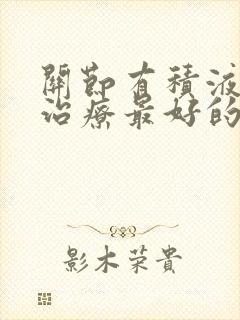 關節有積液
治療最好的
影木榮貴